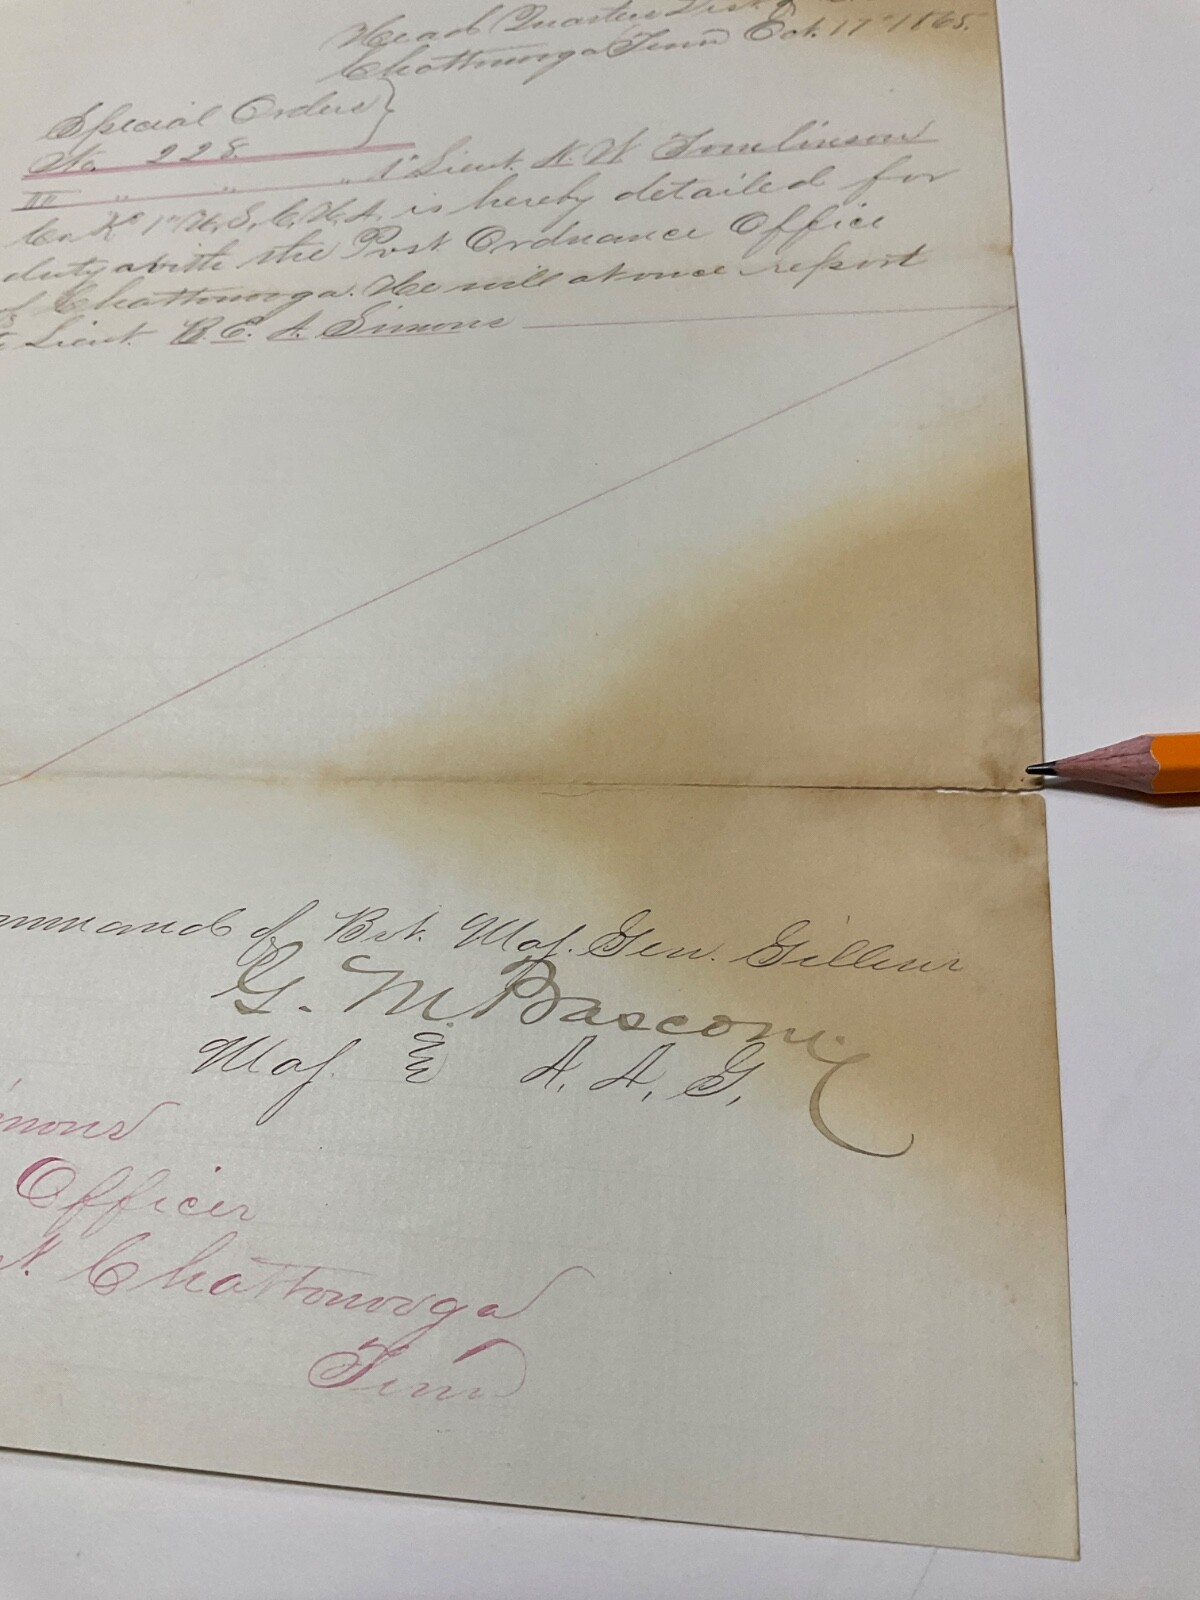 Head Quarters Dist of
Chattanooga Tenn Oct. 17" 1865.
Special Orders }
No. 228.
III " " " 1" Lieut. N. W Tomlinson
Co. K" 1" U. S. C. H. A. is hereby detailed for
duty with the Post Ordnance Office
of Chattanooga. He will at once report
to Lieut. B. E. A. Simons
mmand of Bvt. Maj. Gen. Gillem
G. M. Bascom.
Maj. & A. A. G.
mons
Officer
Chattanooga
Tenn